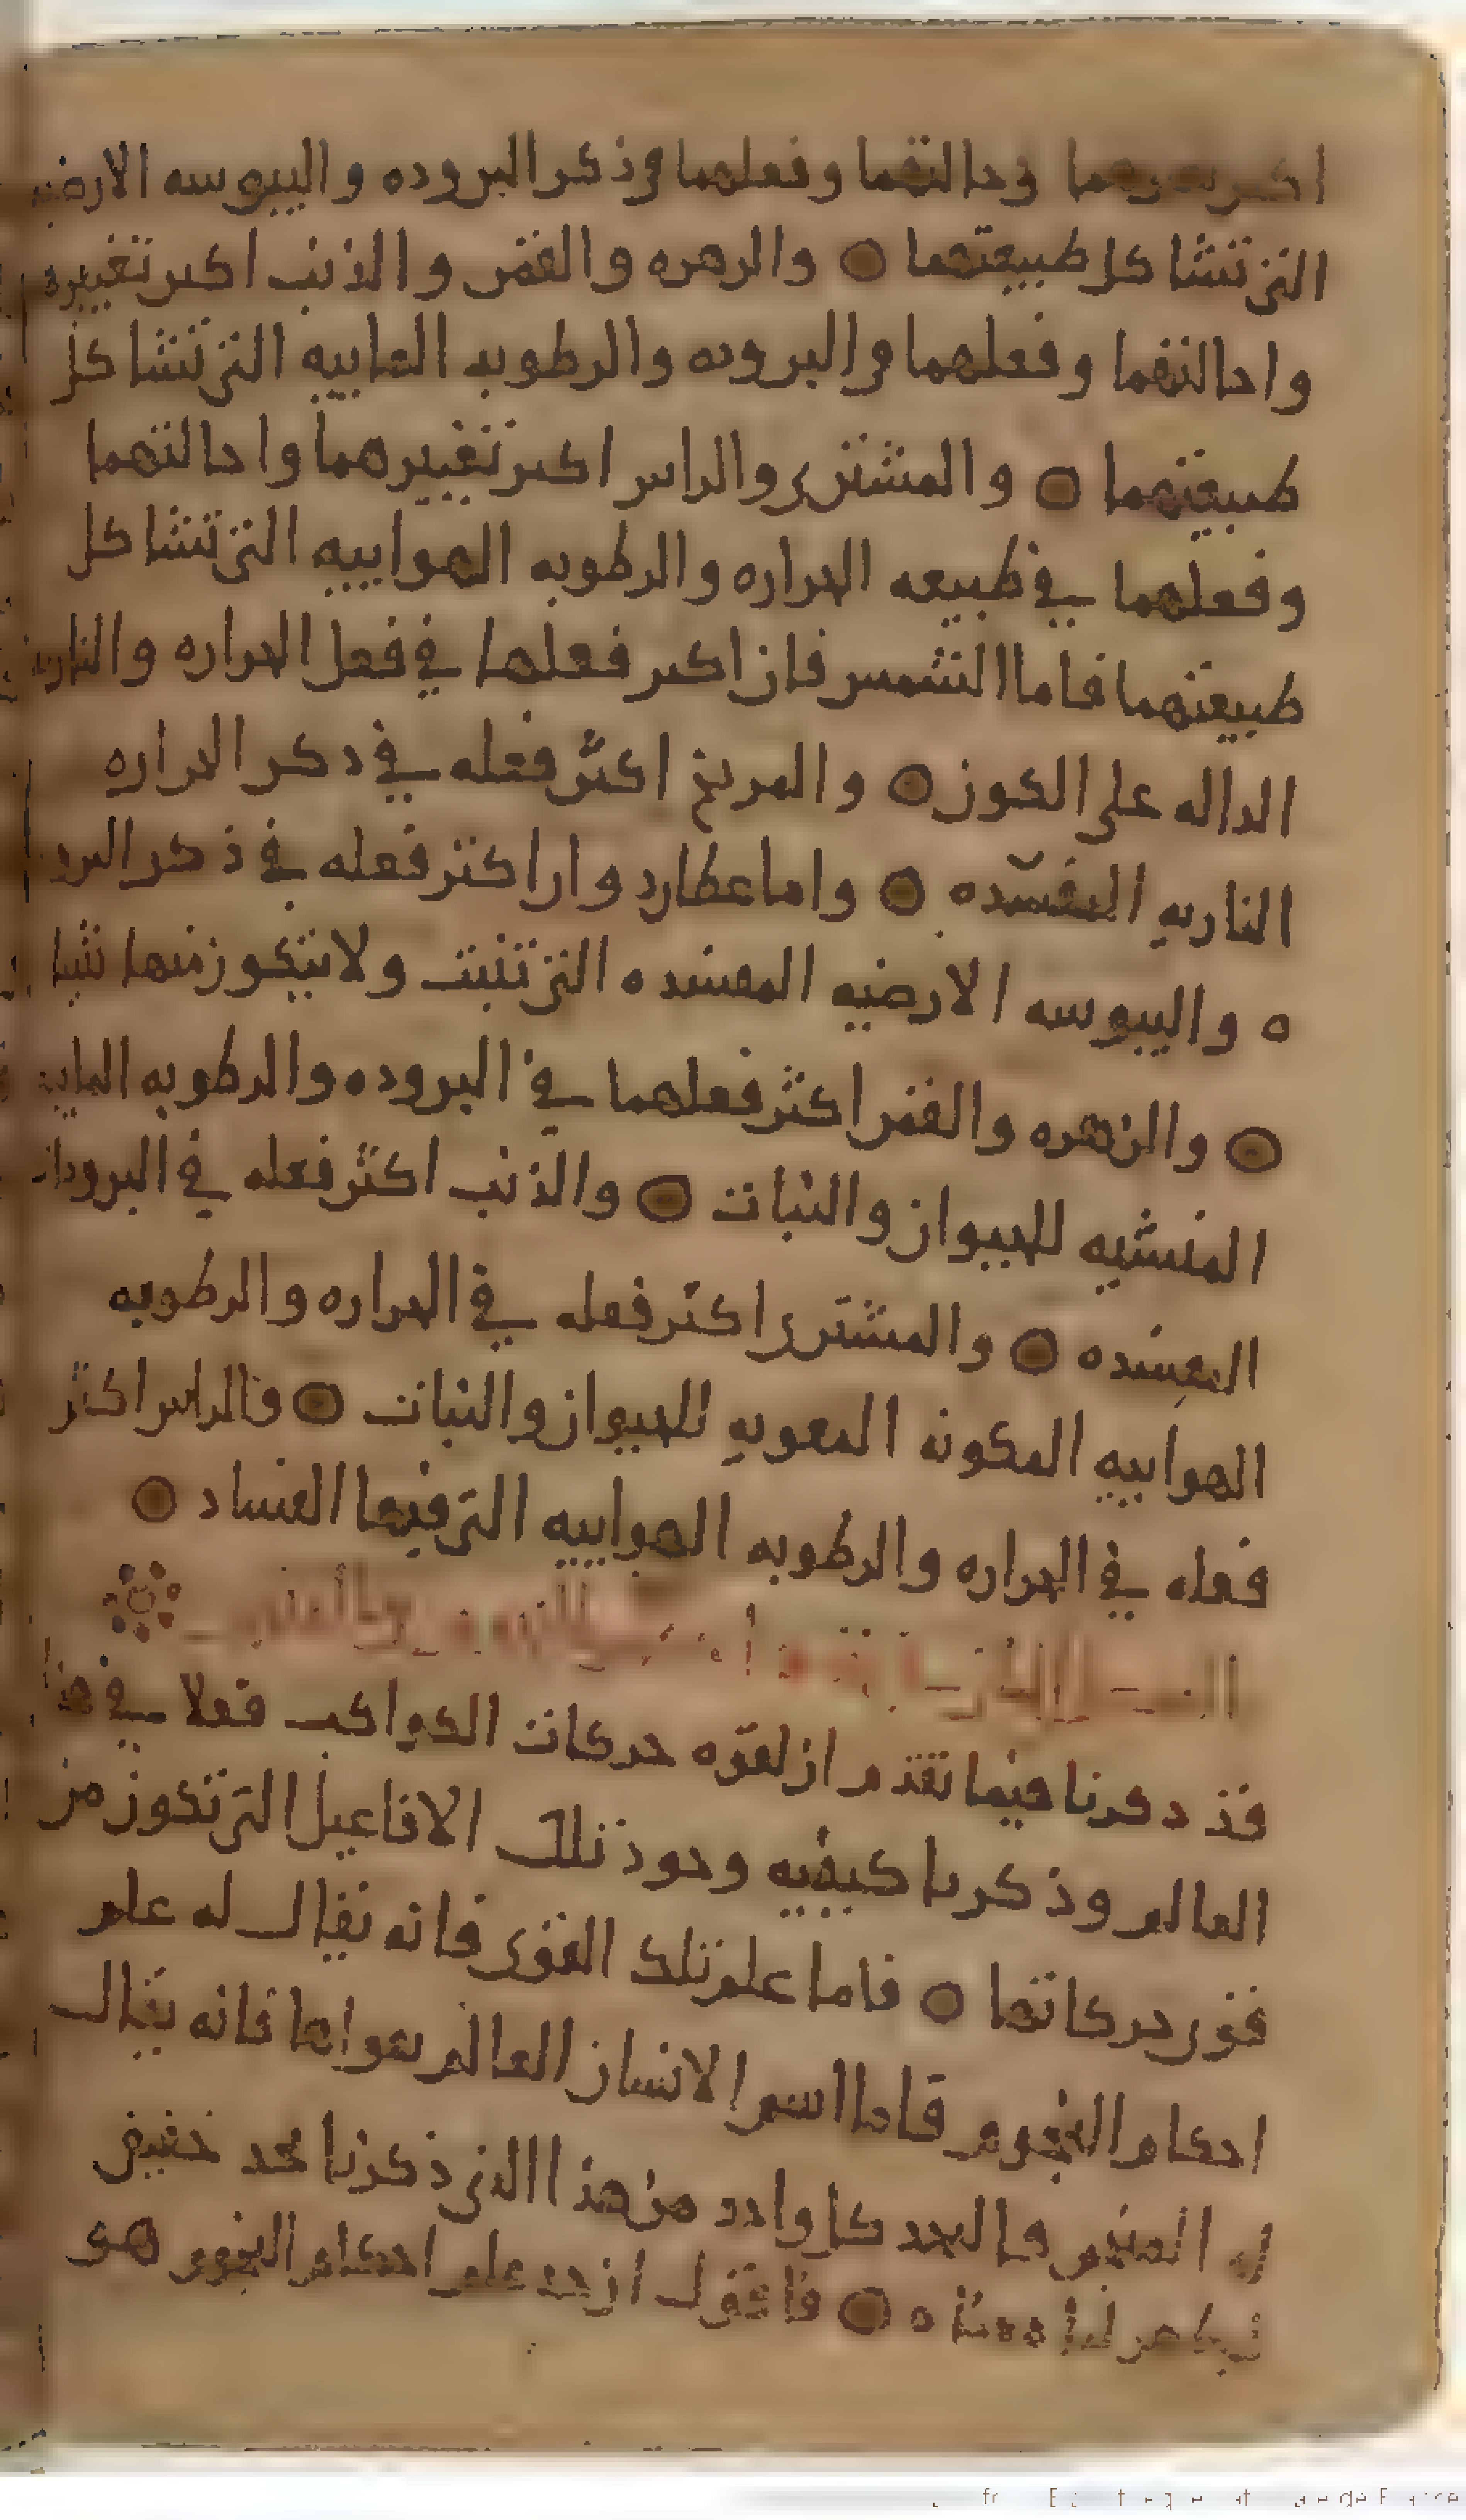 اكبر تغييرهما واحالتهما وفعلهما في ذكر البروده واليبوسه الارضيه
التي تشاكل طبيعتهما ۝ والزهره والقمر والذنب اكبر تغييره
واحالتهما وفعلهما في البروده والرطوبه المابيه التي تشاكل
طبيعتهما ۝ والمشتري والراس اكبر تغييرهما واحالتهما
وفعلهما في طبيعه الحراره والرطوبه الهواييه التي تشاكل
طبيعتهما فاما الشمس فان اكبر فعلها في فعل الحراره والناريه
الداله على الكون ۝ والمريخ اكثر فعله في ذكر الحراره
الناريه المفسده ۝ واما عطارد وان اكثر فعله في ذكر البرود
ه واليبوسه الارضيه المفسده التي تنبت ولا يتكون منها شيا
۝ والزهره والقمر اكثر فعلهما في البروده والرطوبه المايه
المنشيه للحيوان والنبات ۝ والذنب اكثر فعله في البرودات
المفسده ۝ والمشتري اكثر فعله في الحراره والرطوبه
الهوابيه المكونه المقويه للحيوان والنبات ۝ والراس اكثر
فعله في الحراره والرطوبه الهواييه التي فيها الفساد ۝
قد ذكرنا فيما تقدم ان لقوه حركات الكواكب فعلا في هذا
العالم وذكرنا كيفيه وجود تلك الافاعيل التي تكون من
قوى حركاتها ۝ فاما علم تلك القوى فانه يقال له علم
احكام النجوم فاما اسم الانسان العالم بقواها فانه يقال
له المنجم فالحد كل واحد من هذا الذي ذكرنا بحد حقيقي
۝ فاقول ان حد علم احكام النجوم هو